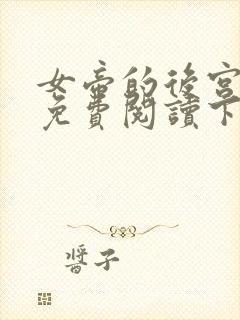 女帝的後宮
免費閱讀下
醬子